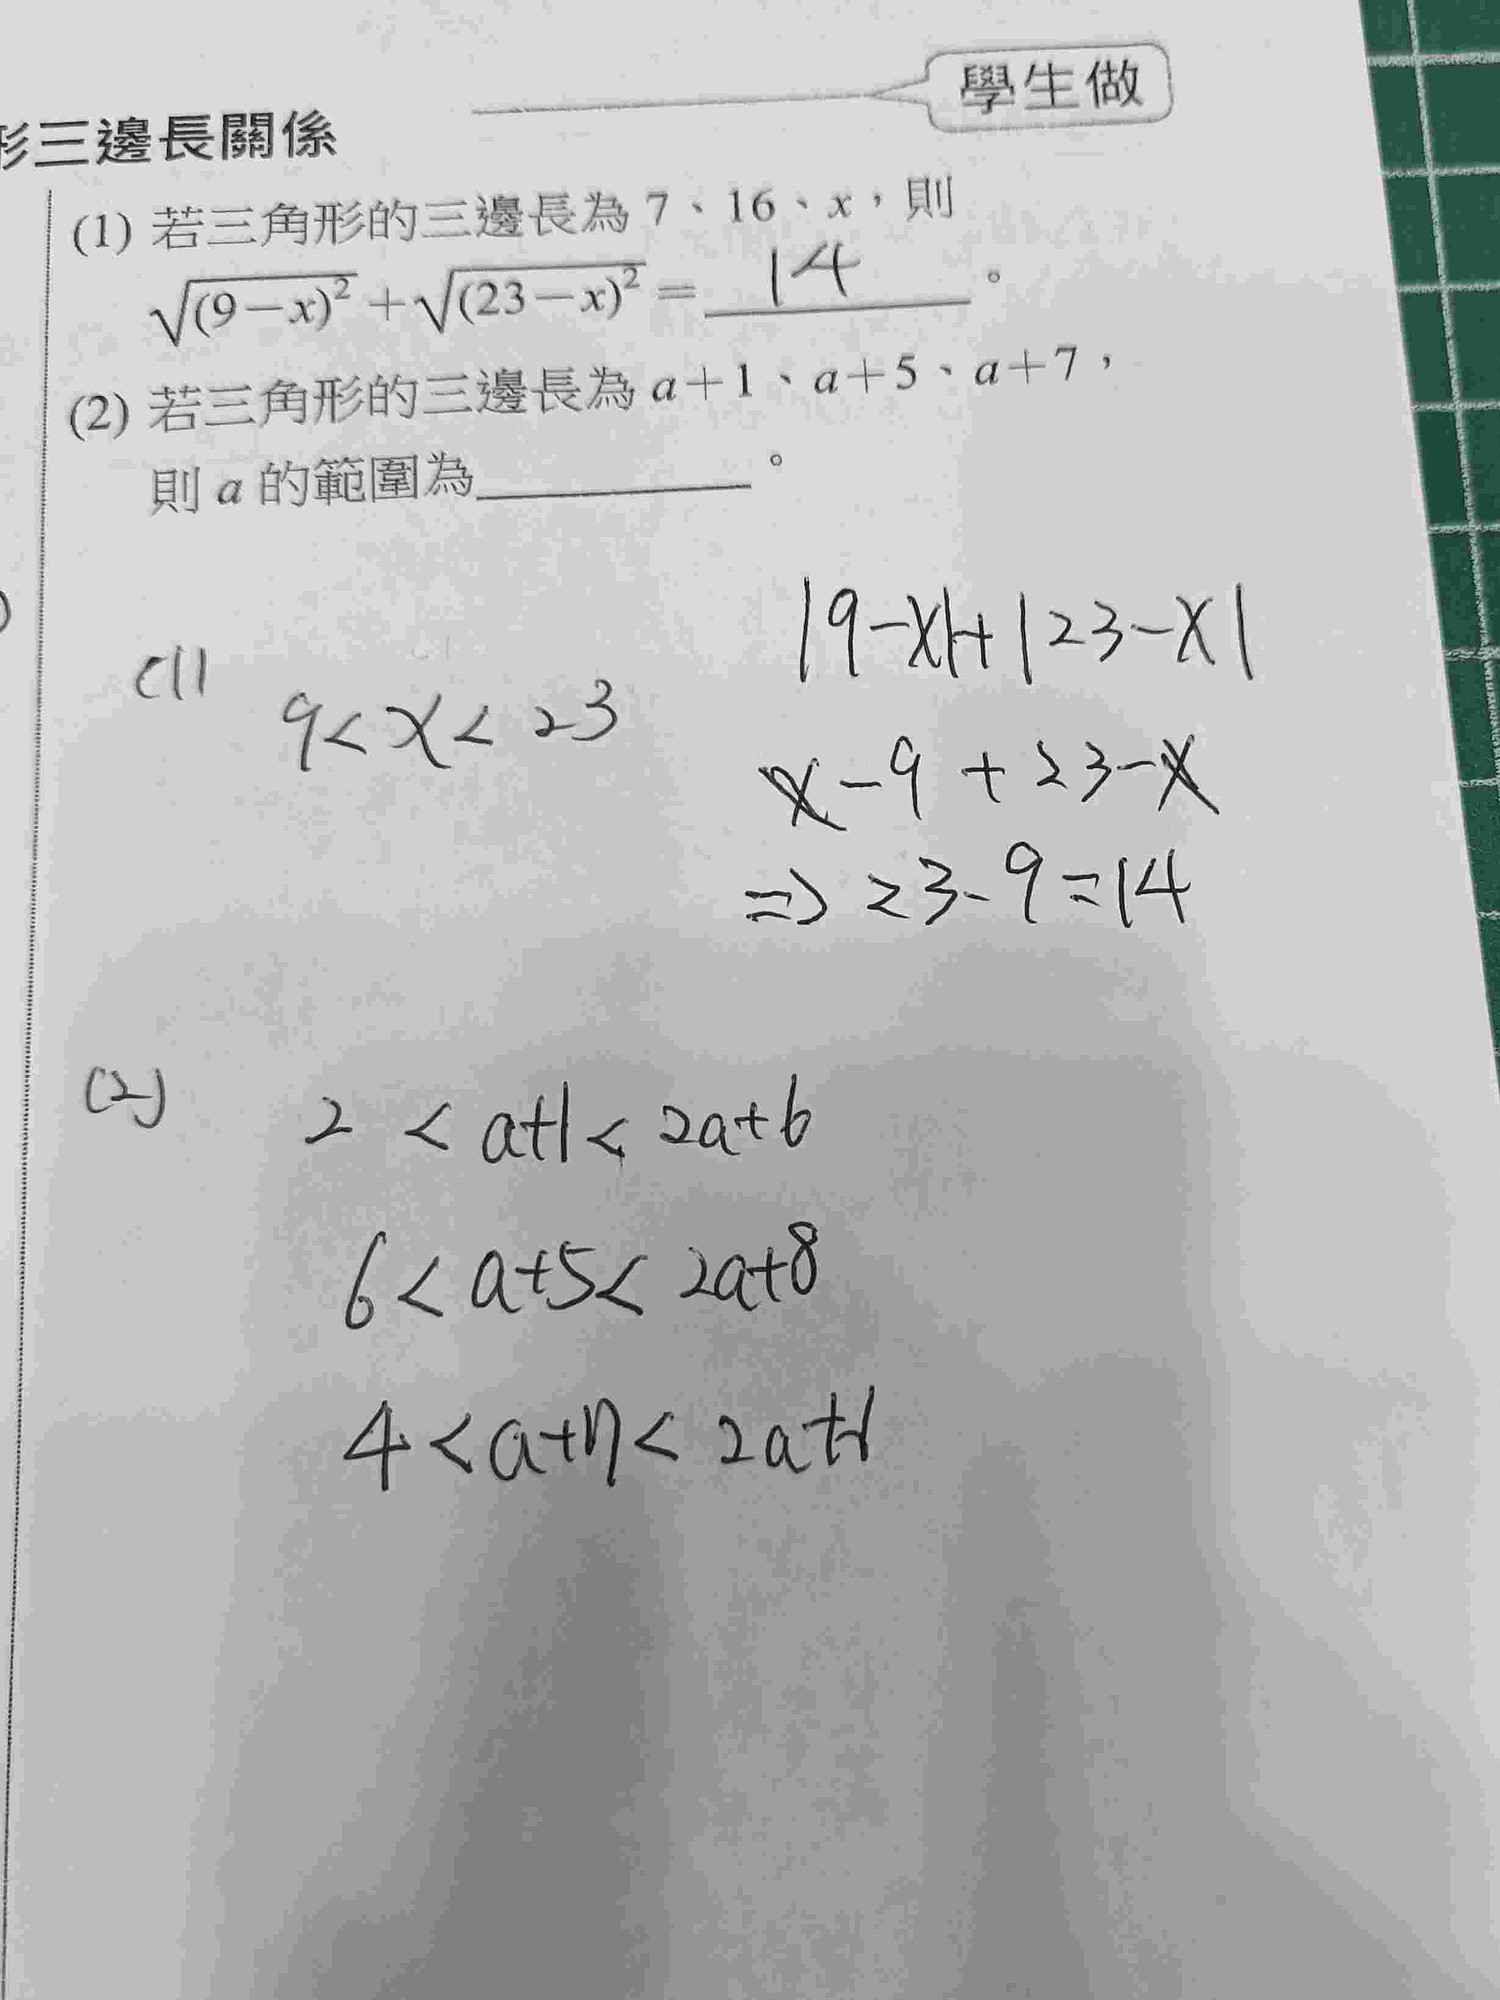 學生做
形三邊長關係
(1) 若三角形的三邊長為 7、16、x，則
√(9－x)² ＋ √(23－x)² ＝ 14 。
(2) 若三角形的三邊長為 a＋1、a＋5、a＋7，
則 a 的範圍為＿＿＿＿＿。
(1)
9<x<23
|9-x|+|23-x|
x-9+23-x
⇒23-9=14
(2)
2<a+1<2a+6
6<a+5<2a+8
4<a+7<2a+1